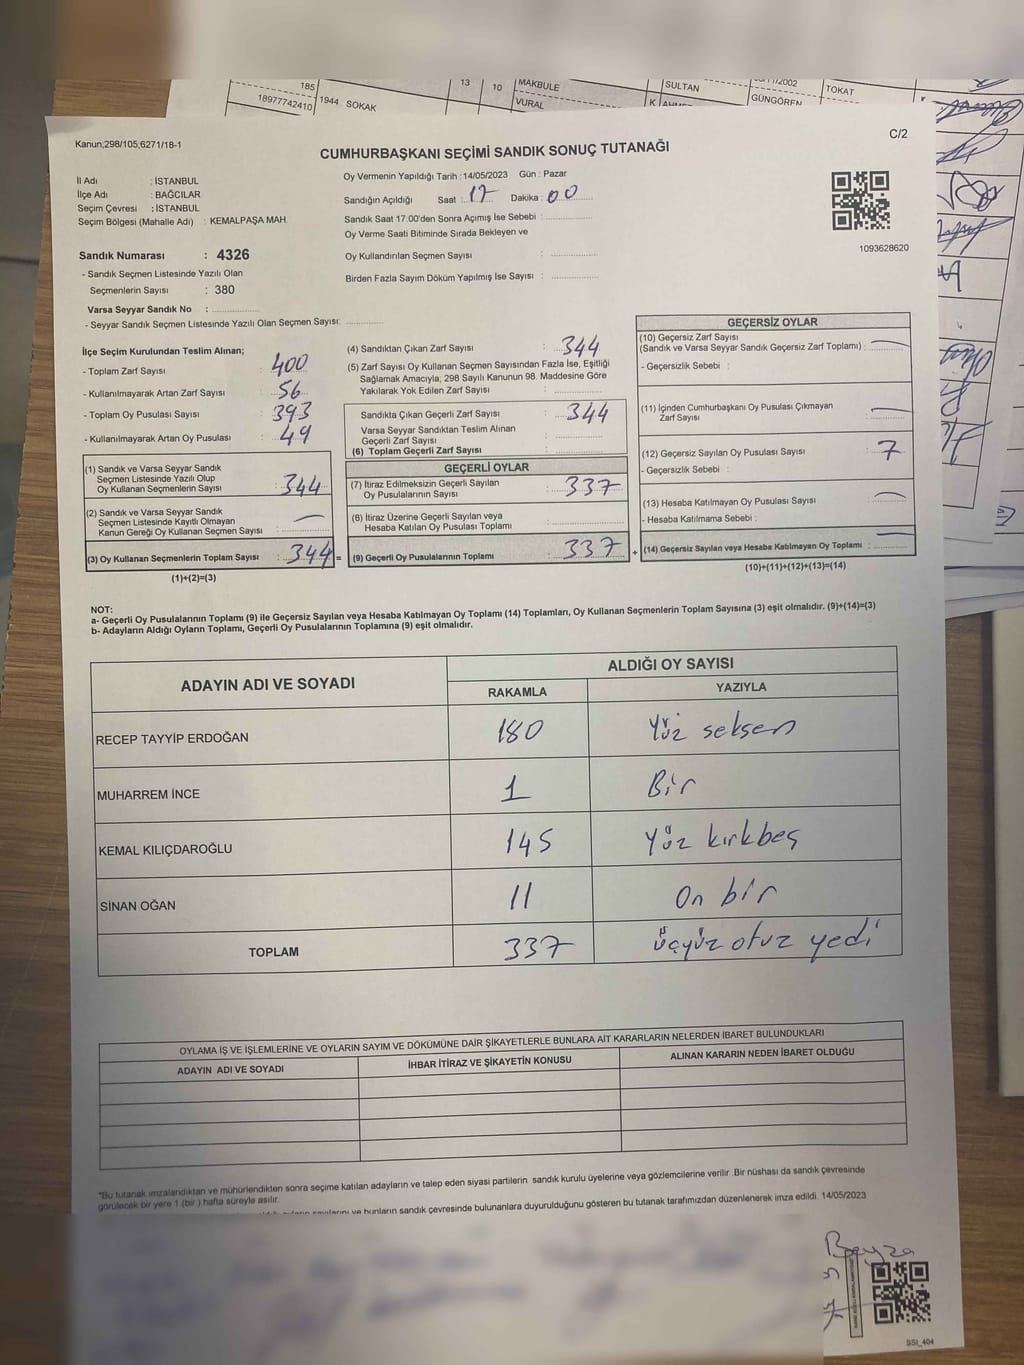 185
18977742410 1944 SOKAK
13
10
MAKBULE
VURAL
K
SULTAN
GÜNGÖREN
TOKAT
Kanun;298/105,6271/18-1
C/2
CUMHURBAŞKANI SEÇİMİ SANDIK SONUÇ TUTANAĞI
İl Adı : İSTANBUL
İlçe Adı : BAĞCILAR
Seçim Çevresi : İSTANBUL
Seçim Bölgesi (Mahalle Adı) : KEMALPAŞA MAH.
Oy Vermenin Yapıldığı Tarih : 14/05/2023 Gün : Pazar
Sandığın Açıldığı Saat : 17 Dakika : 00
Sandık Saat 17.00'den Sonra Açımış İse Sebebi :
Oy Verme Saati Bitiminde Sırada Bekleyen ve
Oy Kullandırılan Seçmen Sayısı :
Birden Fazla Sayım Döküm Yapılmış İse Sayısı :
1093628620
Sandık Numarası : 4326
- Sandık Seçmen Listesinde Yazılı Olan
Seçmenlerin Sayısı : 380
Varsa Seyyar Sandık No :
- Seyyar Sandık Seçmen Listesinde Yazılı Olan Seçmen Sayısı:
İlçe Seçim Kurulundan Teslim Alınan;
- Toplam Zarf Sayısı : 400
- Kullanılmayarak Artan Zarf Sayısı : 56
- Toplam Oy Pusulası Sayısı : 393
- Kullanılmayarak Artan Oy Pusulası : 49
(1) Sandık ve Varsa Seyyar Sandık
Seçmen Listesinde Yazılı Olup
Oy Kullanan Seçmenlerin Sayısı : 344
(2) Sandık ve Varsa Seyyar Sandık
Seçmen Listesinde Kayıtlı Olmayan
Kanun Gereği Oy Kullanan Seçmen Sayısı : —
(3) Oy Kullanan Seçmenlerin Toplam Sayısı : 344 =
(1)+(2)=(3)
(4) Sandıktan Çıkan Zarf Sayısı : 344
(5) Zarf Sayısı Oy Kullanan Seçmen Sayısından Fazla İse, Eşitliği
Sağlamak Amacıyla; 298 Sayılı Kanunun 98. Maddesine Göre
Yakılarak Yok Edilen Zarf Sayısı :
Sandıkta Çıkan Geçerli Zarf Sayısı : 344
Varsa Seyyar Sandıktan Teslim Alınan
Geçerli Zarf Sayısı :
(6) Toplam Geçerli Zarf Sayısı :
GEÇERLİ OYLAR
(7) İtiraz Edilmeksizin Geçerli Sayılan
Oy Pusulalarının Sayısı : 337
(8) İtiraz Üzerine Geçerli Sayılan veya
Hesaba Katılan Oy Pusulası Toplamı :
(9) Geçerli Oy Pusulalarının Toplamı : 337 +
GEÇERSİZ OYLAR
(10) Geçersiz Zarf Sayısı
(Sandık ve Varsa Seyyar Sandık Geçersiz Zarf Toplamı) : —
- Geçersizlik Sebebi :
(11) İçinden Cumhurbaşkanı Oy Pusulası Çıkmayan
Zarf Sayısı : —
(12) Geçersiz Sayılan Oy Pusulası Sayısı : 7
- Geçersizlik Sebebi :
(13) Hesaba Katılmayan Oy Pusulası Sayısı : —
- Hesaba Katılmama Sebebi :
(14) Geçersiz Sayılan veya Hesaba Katılmayan Oy Toplamı : —
(10)+(11)+(12)+(13)=(14)
NOT:
a- Geçerli Oy Pusulalarının Toplamı (9) ile Geçersiz Sayılan veya Hesaba Katılmayan Oy Toplamı (14) Toplamları, Oy Kullanan Seçmenlerin Toplam Sayısına (3) eşit olmalıdır. (9)+(14)=(3)
b- Adayların Aldığı Oyların Toplamı, Geçerli Oy Pusulalarının Toplamına (9) eşit olmalıdır.
ADAYIN ADI VE SOYADI
ALDIĞI OY SAYISI
RAKAMLA YAZIYLA
RECEP TAYYİP ERDOĞAN 180 Yüz seksen
MUHARREM İNCE 1 Bir
KEMAL KILIÇDAROĞLU 145 Yüz kırkbeş
SİNAN OĞAN 11 On bir
TOPLAM 337 üçyüz otuz yedi
OYLAMA İŞ VE İŞLEMLERİNE VE OYLARIN SAYIM VE DÖKÜMÜNE DAİR ŞİKAYETLERLE BUNLARA AİT KARARLARIN NELERDEN İBARET BULUNDUKLARI
ADAYIN ADI VE SOYADI İHBAR İTİRAZ VE ŞİKAYETİN KONUSU ALINAN KARARIN NEDEN İBARET OLDUĞU
*Bu tutanak imzalandıktan ve mühürlendikten sonra seçime katılan adayların ve talep eden siyasi partilerin sandık kurulu üyelerine veya gözlemcilerine verilir. Bir nüshası da sandık çevresinde
görülecek bir yere 1 (bir ) hafta süreyle asılır.
ve bunların sandık çevresinde bulunanlara duyurulduğunu gösteren bu tutanak tarafımızdan düzenlenerek imza edildi. 14/05/2023
Beyza
SSI_404